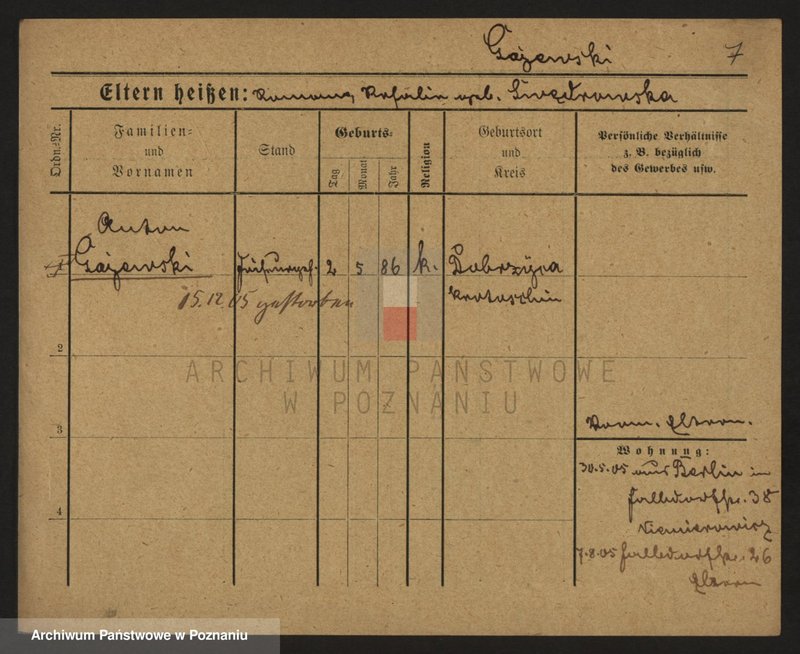 Gajewski 7
Eltern heißen: Roman, geb.
Ordn.-Nr.
Familien-
und
Vornamen
Stand
Geburts-
Tag
Monat
Jahr
Religion
Geburtsort
und
Kreis
Persönliche Verhältnisse
z. B. bezüglich
des Gewerbes usw.
Anton
Gajewski 2 5 86 k. Dobrzyca
Krotoschin
15.12.05 gestorben
2
3
4
ARCHIWUM PAŃSTWOWE
W POZNANIU
Vorm. Eltern.
Wohnung:
30.5.05 aus Berlin in
38
7.8.05 26
Eltern
Archiwum Państwowe w Poznaniu